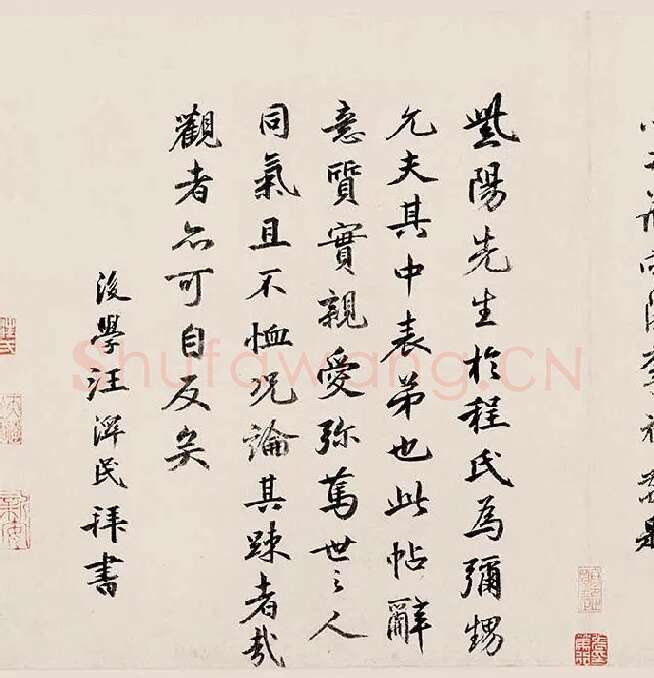 紫陽先生於程氏為彌甥
允夫其中表弟也此帖辭
意質實親愛弥篤世之人
同氣且不恤况論其踈者哉
觀者亦可自反矣
後學汪澤民拜書
Shufawang.CN